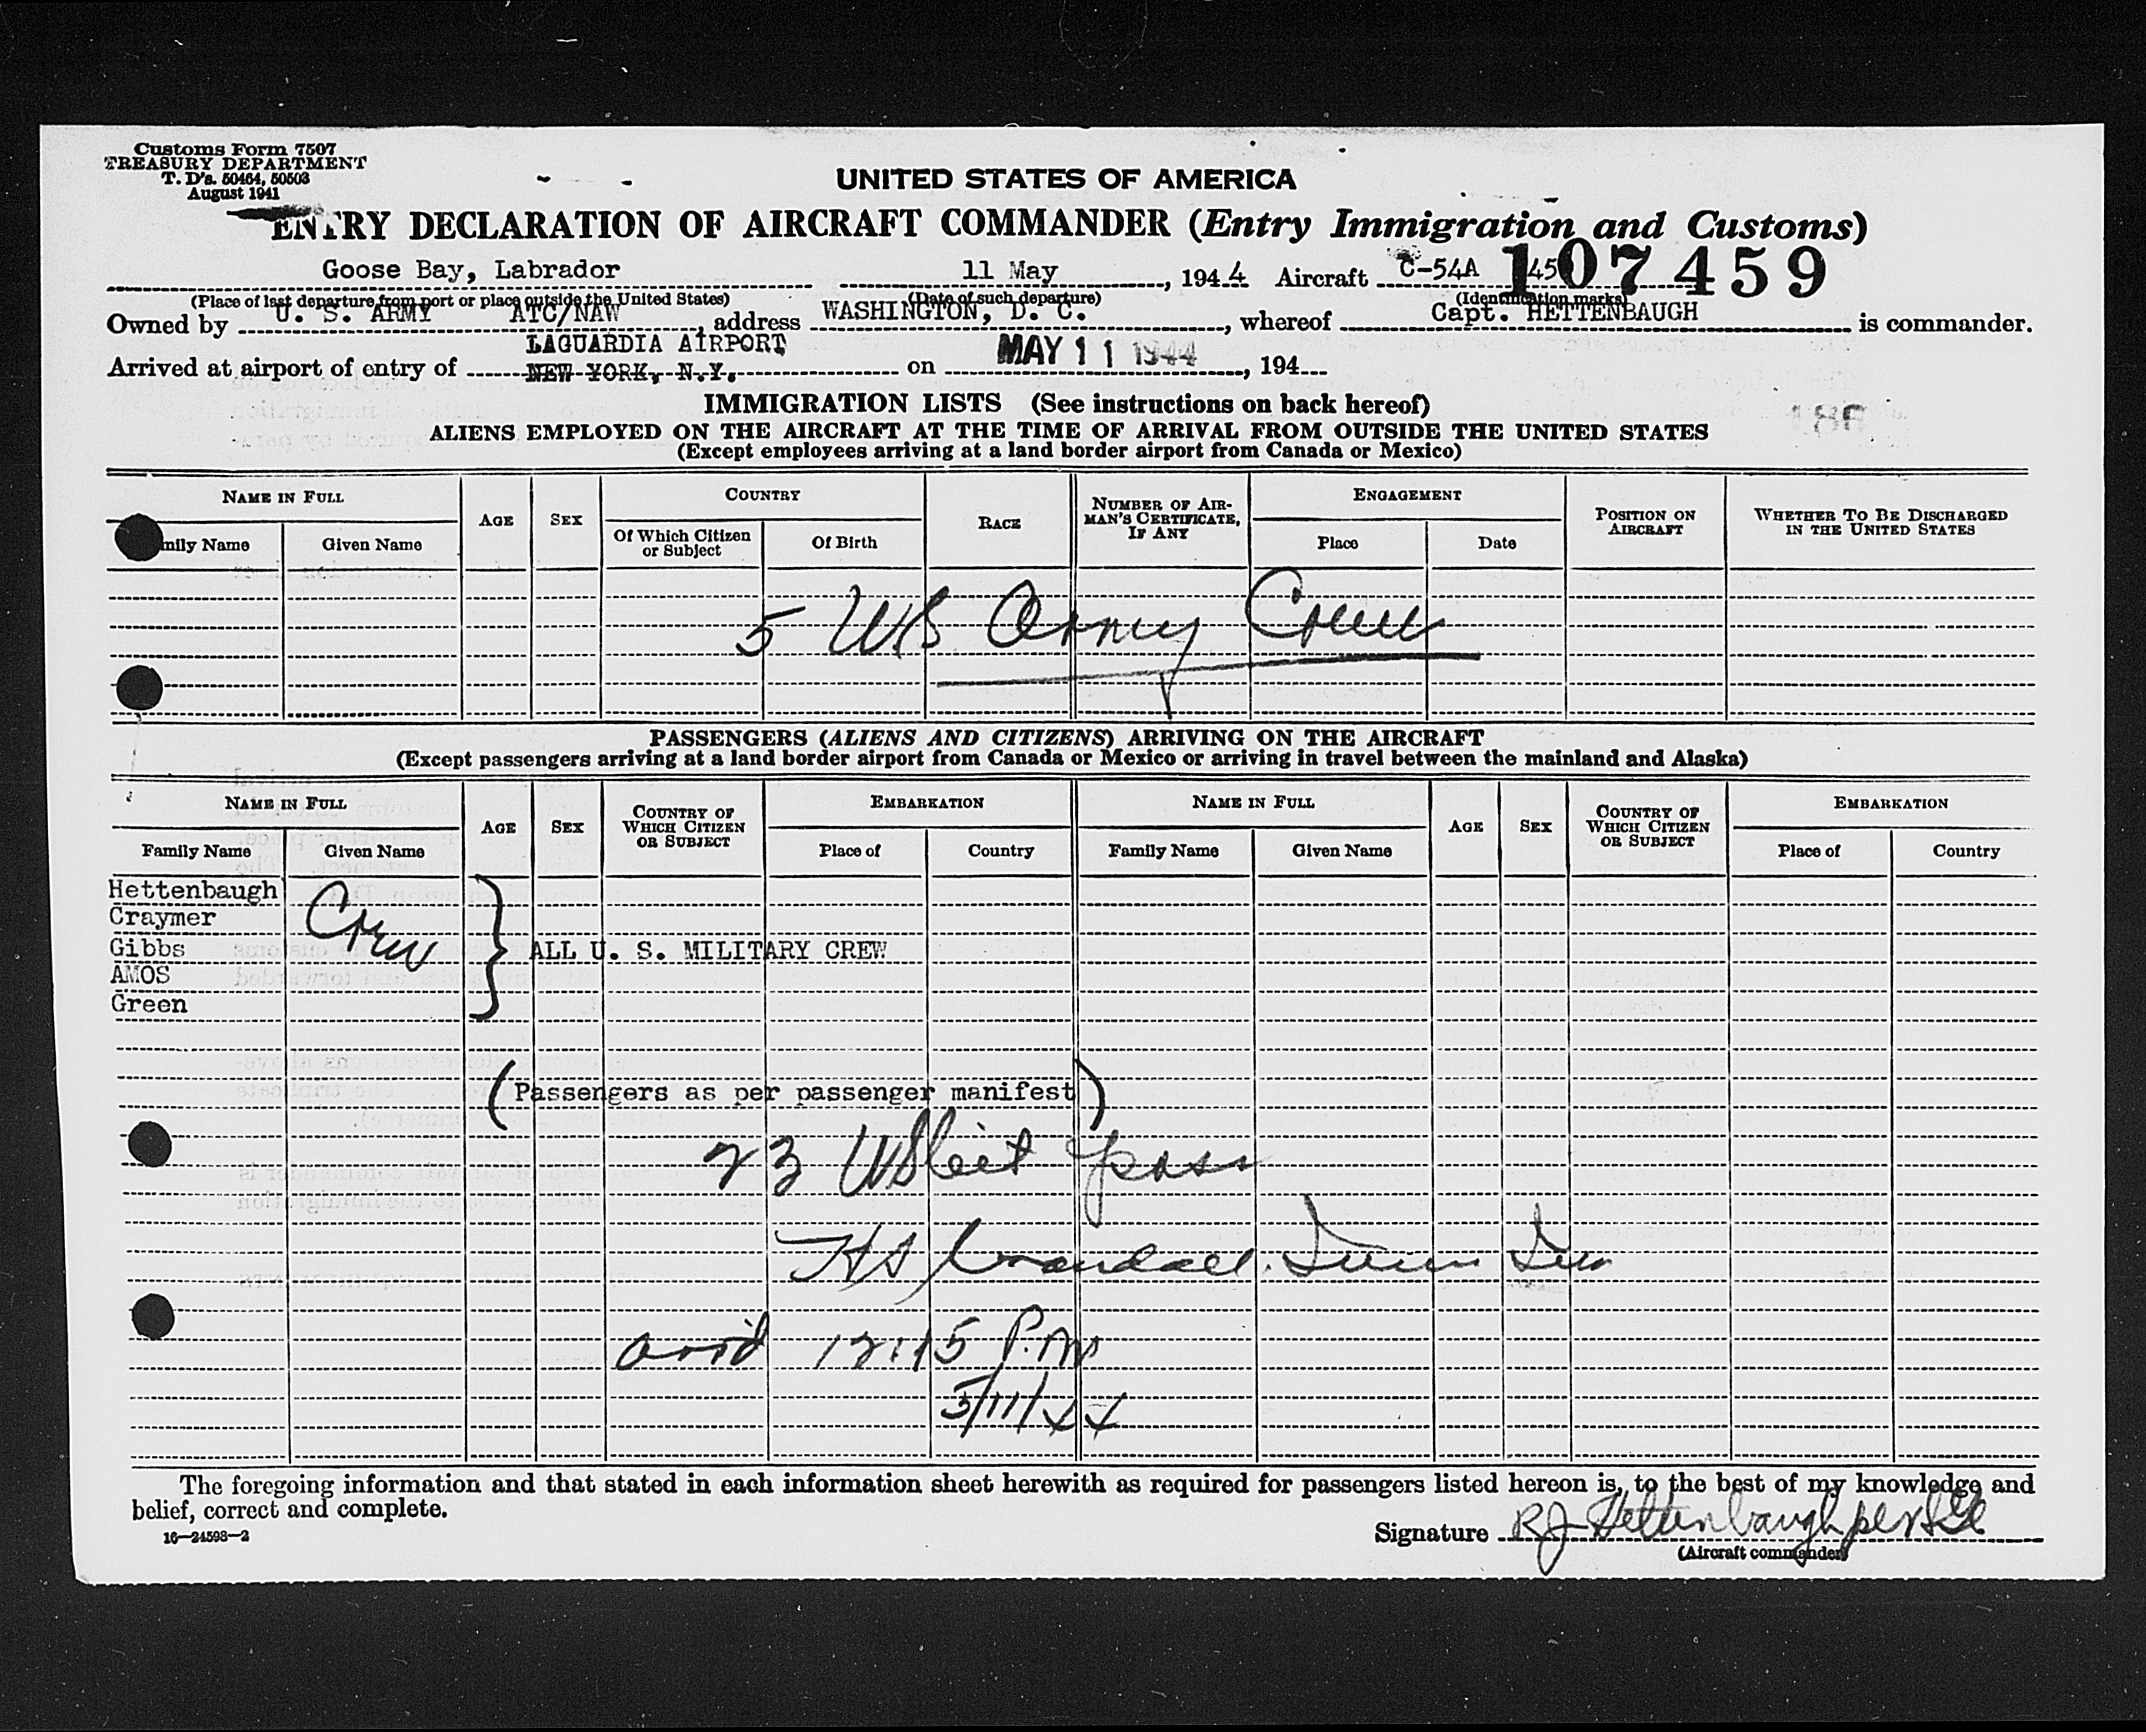 Customs Form 7507
TREASURY DEPARTMENT
T. D's. 50464, 50503
August 1941
UNITED STATES OF AMERICA
ENTRY DECLARATION OF AIRCRAFT COMMANDER (Entry Immigration and Customs)
Goose Bay, Labrador 11 May, 1944 Aircraft C-54A 107459
(Place of last departure from port or place outside the United States) (Date of such departure) (Identification marks)
Owned by U. S. ARMY ATC/NAW, address WASHINGTON, D. C., whereof Capt. HETTENBAUGH is commander.
LAGUARDIA AIRPORT
Arrived at airport of entry of NEW YORK, N.Y. on MAY 11 1944, 194
IMMIGRATION LISTS (See instructions on back hereof)
ALIENS EMPLOYED ON THE AIRCRAFT AT THE TIME OF ARRIVAL FROM OUTSIDE THE UNITED STATES
(Except employees arriving at a land border airport from Canada or Mexico)
NAME IN FULL AGE SEX COUNTRY RACE NUMBER OF AIRMAN'S CERTIFICATE, IF ANY ENGAGEMENT POSITION ON AIRCRAFT WHETHER TO BE DISCHARGED IN THE UNITED STATES
Given Name Of Which Citizen or Subject Of Birth Place Date
5 US Army Crew
PASSENGERS (ALIENS AND CITIZENS) ARRIVING ON THE AIRCRAFT
(Except passengers arriving at a land border airport from Canada or Mexico or arriving in travel between the mainland and Alaska)
NAME IN FULL AGE SEX COUNTRY OF WHICH CITIZEN OR SUBJECT EMBARKATION NAME IN FULL AGE SEX COUNTRY OF WHICH CITIZEN OR SUBJECT EMBARKATION
Family Name Given Name Place of Country Family Name Given Name Place of Country
Hettenbaugh
Craymer Crew
Gibbs ALL U. S. MILITARY CREW
AMOS
Green
(Passengers as per passenger manifest)
23 US Cit pass
HS Crandall
arr'd 12:15 P.M
5/11/44
The foregoing information and that stated in each information sheet herewith as required for passengers listed hereon is, to the best of my knowledge and
belief, correct and complete.
16—24598—2
Signature RJ Hettenbaugh per
(Aircraft commander)